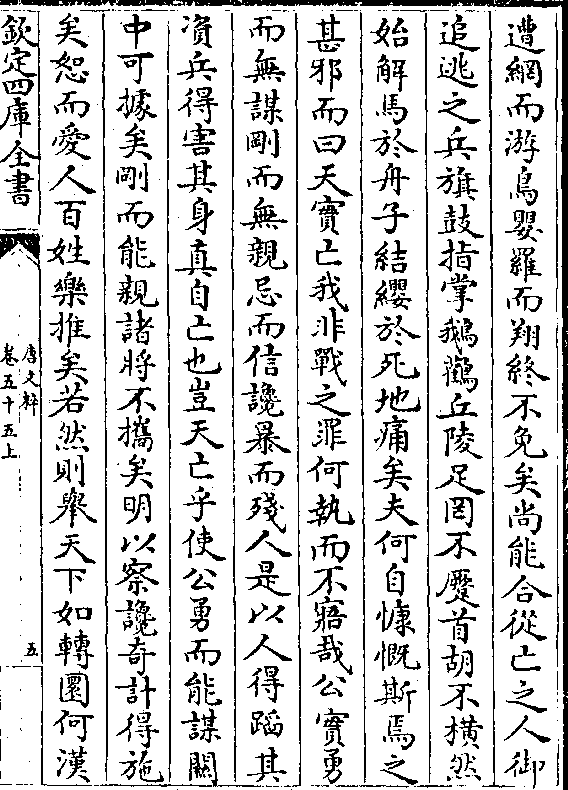 遭網而游鳥嬰羅而翔終不免矣尚能合從亡之人御
追逃之兵旗鼓指掌鵝鸛丘陵足罔不蹷首胡不横然
始解馬於舟子結纓於死地痛矣夫何自慷慨斯焉之
甚邪而曰天實亡我非戰之罪何執而不寤哉公實勇
而無謀剛而無親忌而信讒暴而殘人是以人得蹈其
湏兵得害其身真自亡也豈天亡乎使公勇而能謀關
中可據矣剛而能親諸將不攜矣明以察讒奇計得施
矣恕而愛人百姓樂推矣若然則舉天下如轉圜何漢
欽定四庫全書
唐文粹
卷五十五上
五